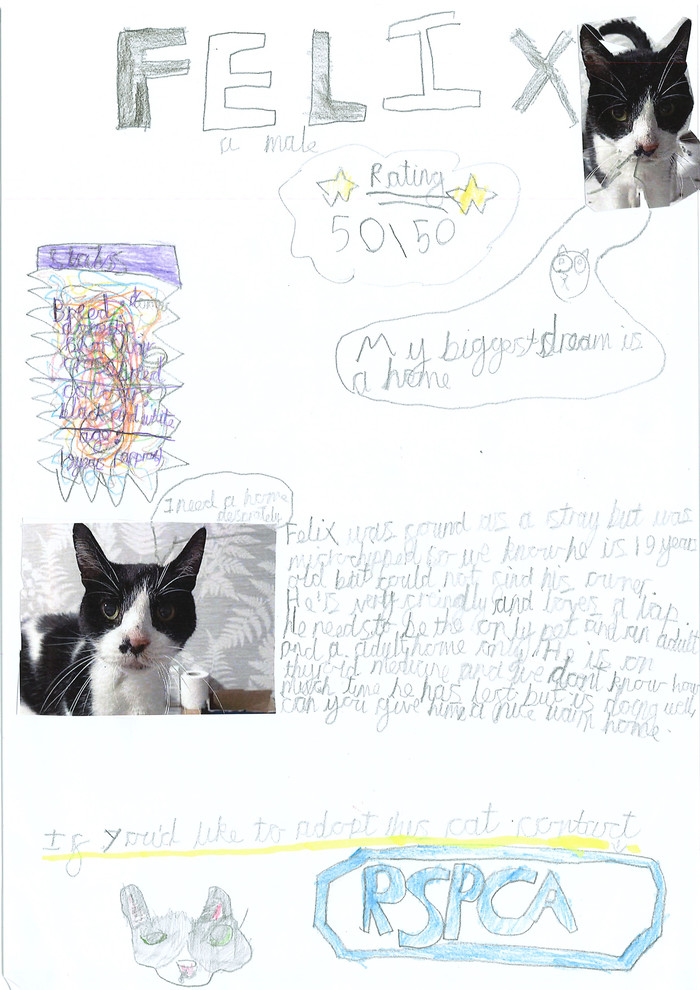 FELIX
a male
Rating
50\50
My biggest dream is
a home
Stats
Breed:
domestic
black and white
I need a home
desprately
Felix was found as a stray but was
microchipped so we know he is 19 years
old but could not find his owner.
He is very friendly and loves a lap.
He needs to be the only pet and an adult
and a adult home only. He is on
thyroid medicine and we dont know how
much time he has left but is doing well,
can you give him a nice warm home.
If you'd like to adopt this cat contact
RSPCA